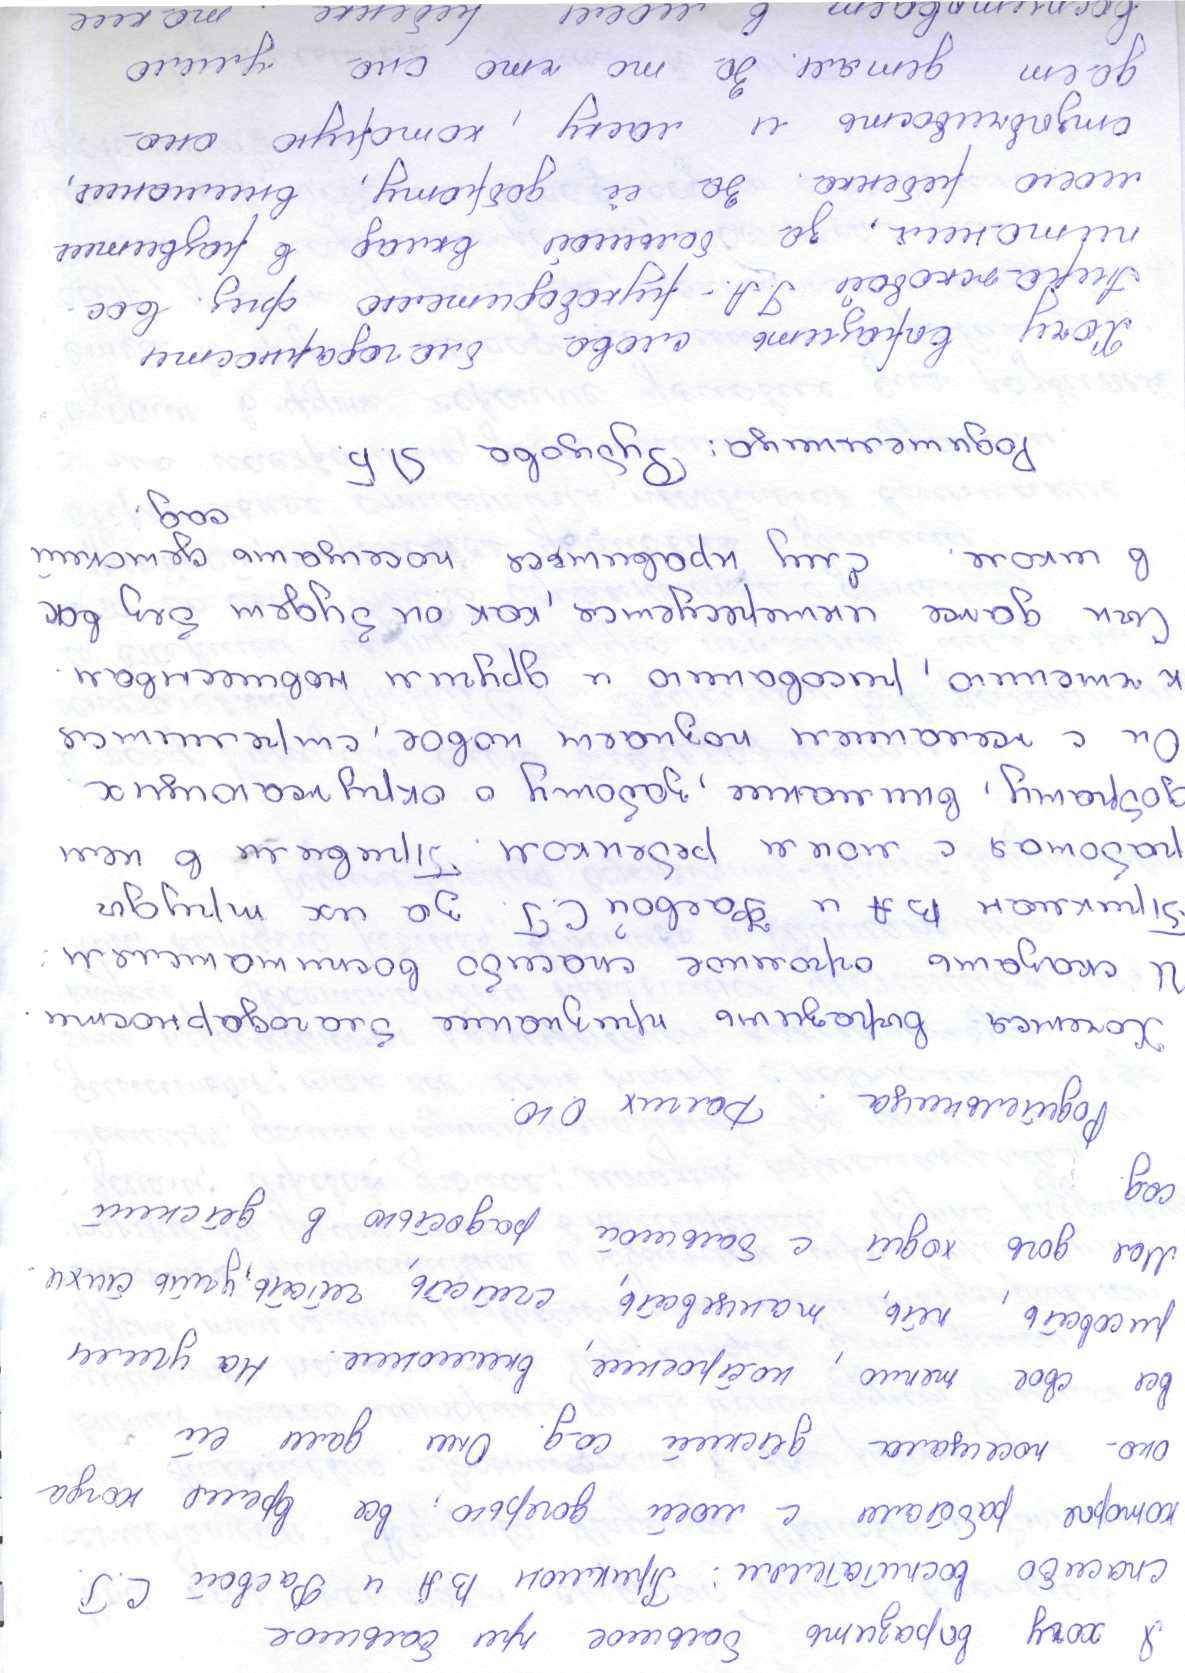 Я хочу выразить большое при большое
спасибо воспитателям: Приклион В.А и Фаевой С.Г.
которые работали с моей дочерью, все время когда
она посещала детский сад. Они дали ей
все свое тепло, настроение, внимание. Научили
рисовать, петь, танцевать, считать, читать, учить стихи.
Моя дочь ходит с большой радостью в детский
сад.
Родительница: Ю.
Хочется выразить признание благодарности
и сказать огромное спасибо воспитателям:
В.А и Фаевой С.Г. За их труды
работая с моим ребенком. Привили в нем
доброту, внимание, заботу о окружающих.
Он с желанием познает новое, стремится
к умению, рисованию и другим навыкам.
Сын даже интересуется, как он будет без вас
в школе. Ему нравится посещать детский
сад.
Родительница:
Хочу выразить слова благодарности
Г.А. - руководителю физ. вос-
питания, за большой вклад в развитие
моего ребенка. За её доброту, внимание,
отзывчивость и ласку, которую она
дает детям. За то что она умело
воспитывает в моем ребенке такие